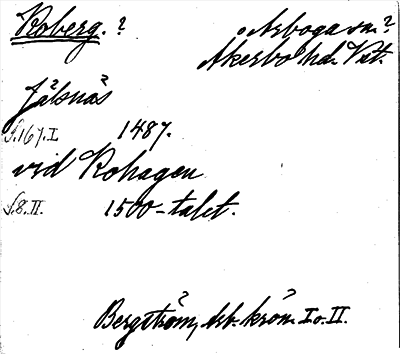 Koberg. ?
Arboga sn ?
Åkerbo hd. Vst.
Jälsnäs
S.167.I 1487.
vid Kohagen
S.8.II. 1500-talet.
Bergström, Arb. krön. I o. II.